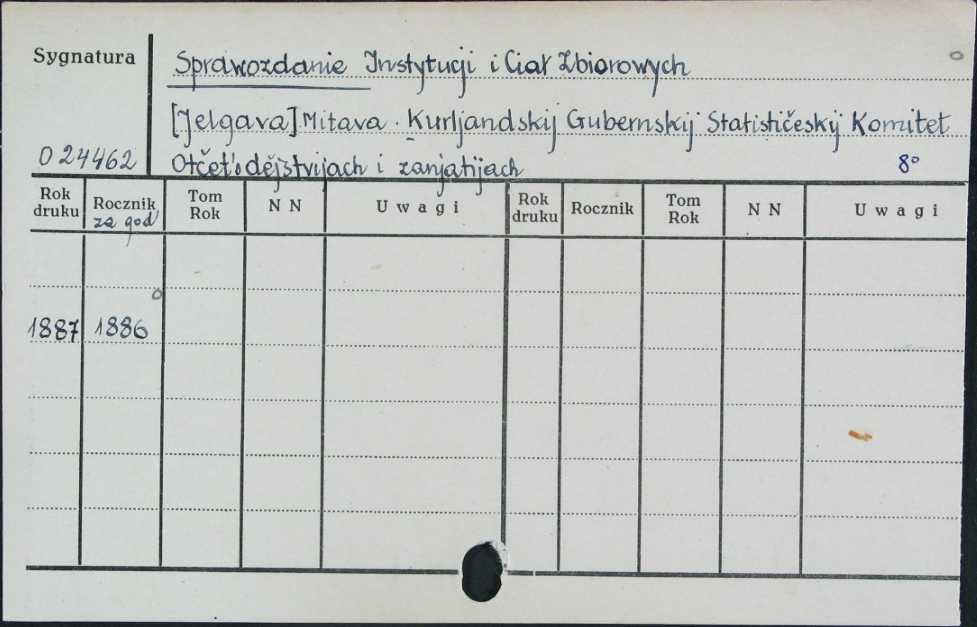 Sygnatura
Sprawozdanie Instytucji i Ciał Zbiorowych
[Jelgava] Mitava. Kurljandskij Gubernskij Statističeskij Komitet
024462 Otčet' o dějstvijach i zanjatijach 8°
Rok druku Rocznik za god Tom Rok N N Uwagi Rok druku Rocznik Tom Rok N N Uwagi
1887 1886